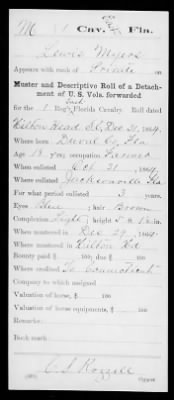 M Cav. Fla.
Lewis Myers
Appears with rank of Private on
Muster and Descriptive Roll of a Detach-
ment of U. S. Vols. forwarded
for the 1 Reg't Florida Cavalry. Roll dated
Hilton Head S.C. Dec 31, 1864.
Where born Duval Co, Fla
Age 18 y'rs; occupation Farmer
When enlisted Oct 31, 1864
Where enlisted Jacksonville Fla
For what period enlisted 3 years.
Eyes Blue; hair Brown
Complexion Light; height 5 ft. in.
When mustered in Dec 29, 1864
Where mustered in Hilton Hd
Bounty paid $ 100; due $ 100
Where credited To Connecticut
Company to which assigned
Valuation of horse, $ 100
Valuation of horse equipments, $ 100
Remarks:
Book mark:
Copyist.